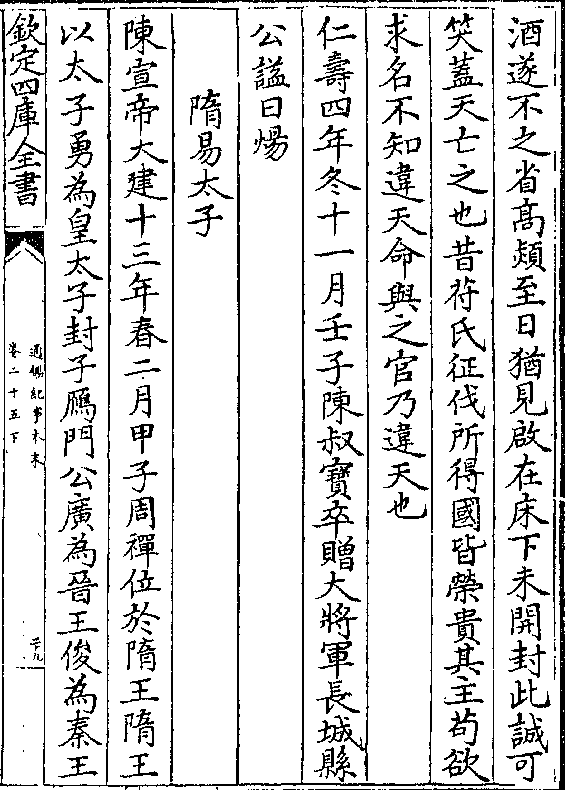 酒遂不之省高熲至日猶見啟在床下未開封此誠可
笑蓋天亡之也昔苻氏征伐所得國皆榮貴其主苟欲
求名不知違天命與之官乃違天也
仁壽四年冬十一月壬子陳叔寶卒贈大將軍長城縣
公諡曰煬
隋易太子
陳宣帝大建十三年春二月甲子周禪位於隋王隋王
以太子勇為皇太子封子鴈門公廣為晉王俊為秦王
欽定四庫全書
通鑑紀事本末
卷二十五下
三十九